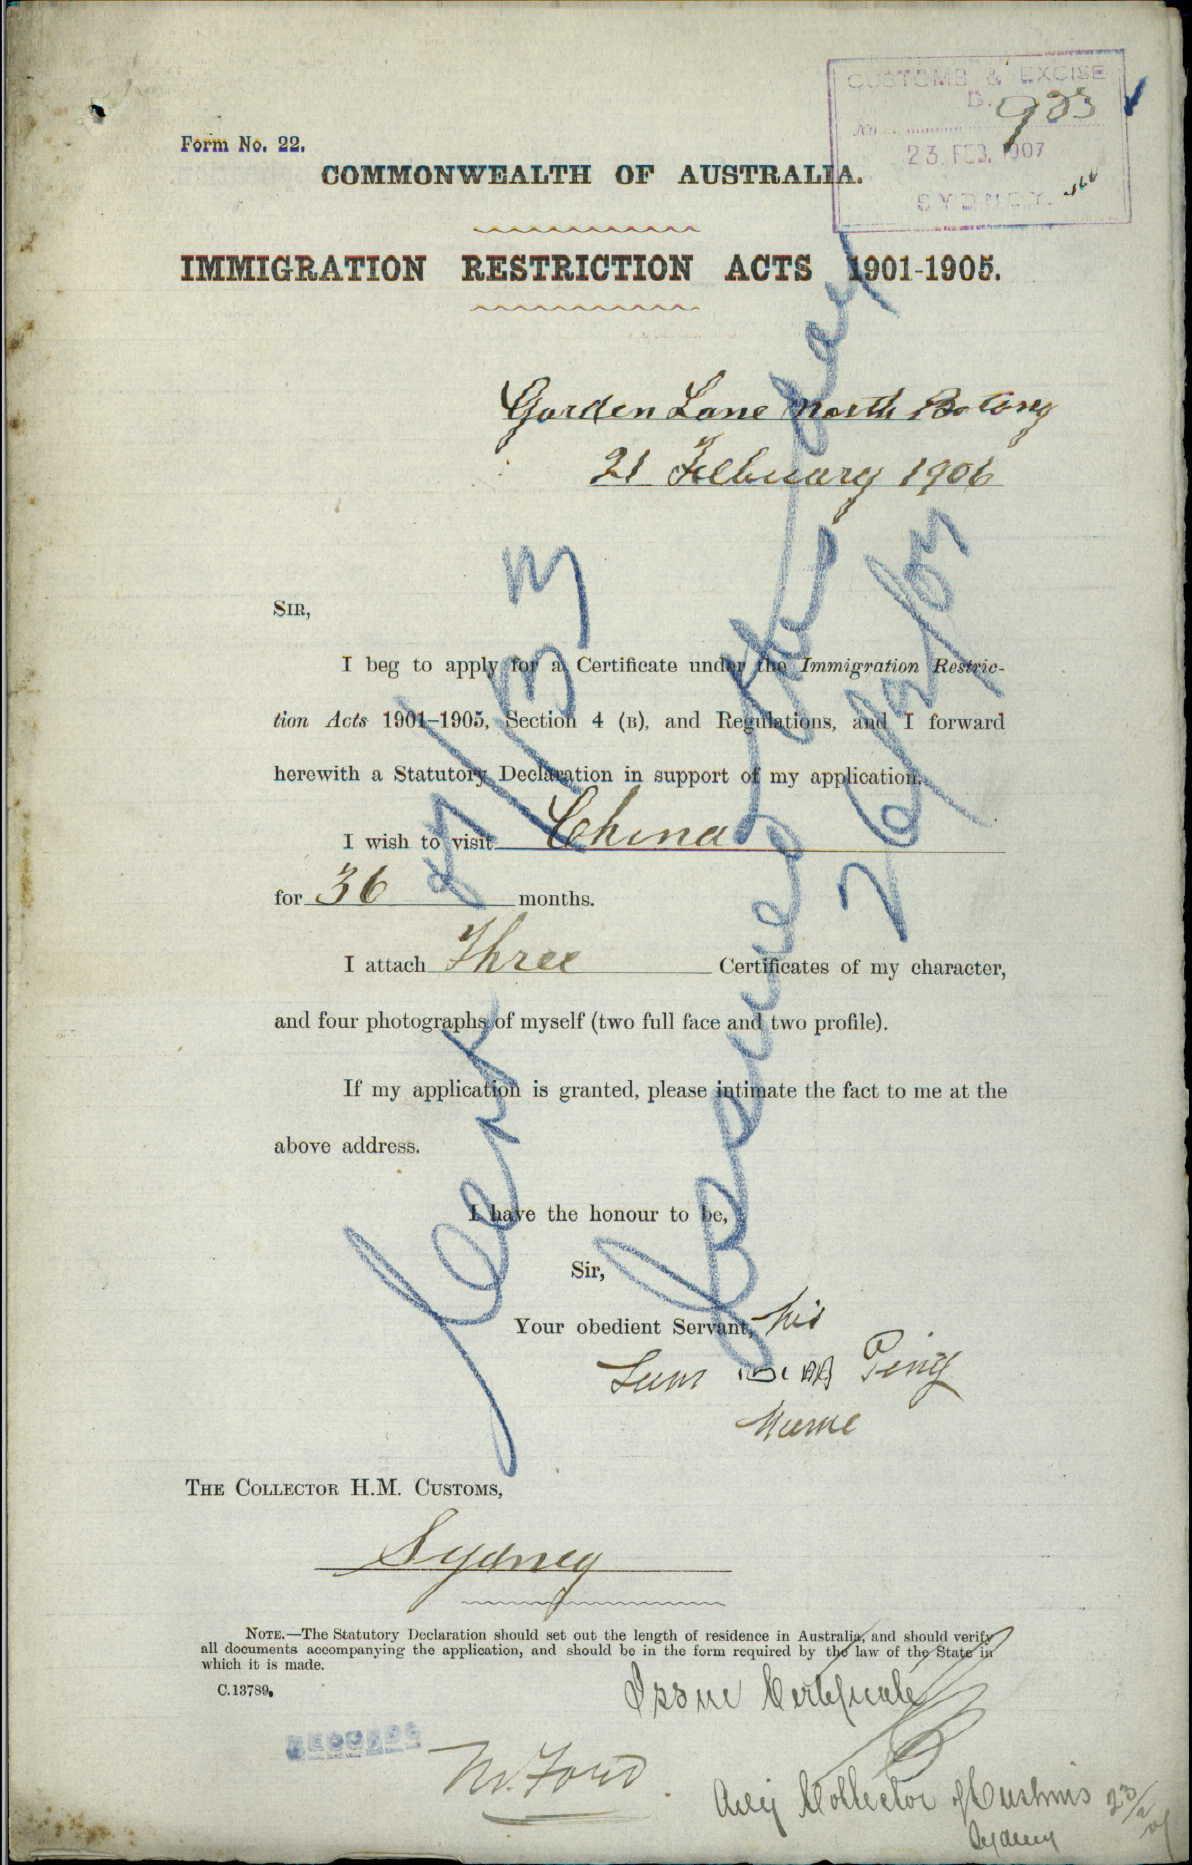 CUSTOMS & EXCISE
No. 903
23 FEB. 1907
SYDNEY.
Form No. 22.
COMMONWEALTH OF AUSTRALIA.
IMMIGRATION RESTRICTION ACTS 1901-1905.
Garden Lane North Botany
21 February 1906
SIR,
I beg to apply for a Certificate under the Immigration Restric-
tion Acts 1901–1905, Section 4 (B), and Regulations, and I forward
herewith a Statutory Declaration in support of my application.
I wish to visit China
for 36 months.
I attach Three Certificates of my character,
and four photographs of myself (two full face and two profile).
If my application is granted, please intimate the fact to me at the
above address.
I have the honour to be,
Sir,
Your obedient Servant, his
Ping
Name
THE COLLECTOR H.M. CUSTOMS,
Sydney
NOTE.—The Statutory Declaration should set out the length of residence in Australia, and should verify
all documents accompanying the application, and should be in the form required by the law of the State in
which it is made.
C.13789.
Issue Certificate
RECORDS
Collector of Customs 23/2/07
Sydney
Cert
26/2/07